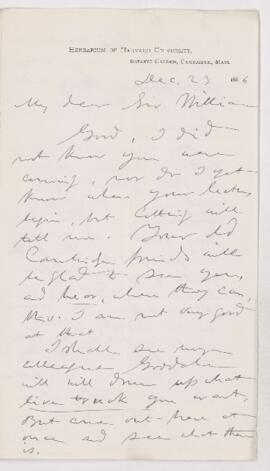 HERBARIUM OF HARVARD UNIVERSITY,
BOTANIC GARDEN, CAMBRIDGE, MASS.
Dec. 23 86
My dear Sir William
Good, I did
not know you were
coming, nor do I yet
know when your lectures
begin, but Cutting will
tell me. Your old
Cambridge friends will
be glad to see you,
and hear, when they can,
tho. I am not very good
at that
I shall see my
colleague Goodale
will draw up what
you want,
But come out here at
once and see what there
is.